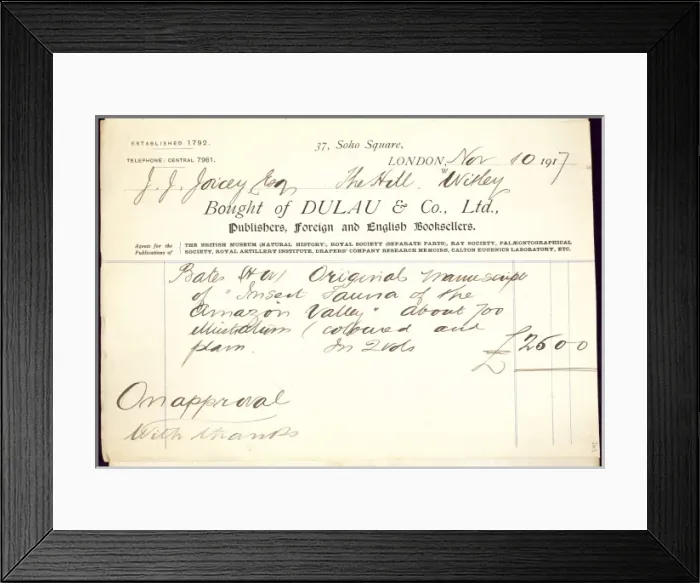 ESTABLISHED 1792.
37, Soho Square,
TELEPHONE: CENTRAL 7961.
LONDON, Nov 10 1917
W
J. J. Joicey Esq The Hill Witley
Bought of DULAU & Co., Ltd.,
Publishers, Foreign and English Booksellers.
Agents for the Publications of
THE BRITISH MUSEUM (NATURAL HISTORY), ROYAL SOCIETY (SEPARATE PARTS), RAY SOCIETY, PALÆONTOGRAPHICAL
SOCIETY, ROYAL ARTILLERY INSTITUTE, DRAPERS' COMPANY RESEARCH MEMOIRS, GALTON EUGENICS LABORATORY, ETC.
Bates Original Manuscript
of "Insect Fauna of the
Amazon Valley" about 700
illustrations (coloured and
plain. In 2 vols £ 26 0 0
On approval
With thanks